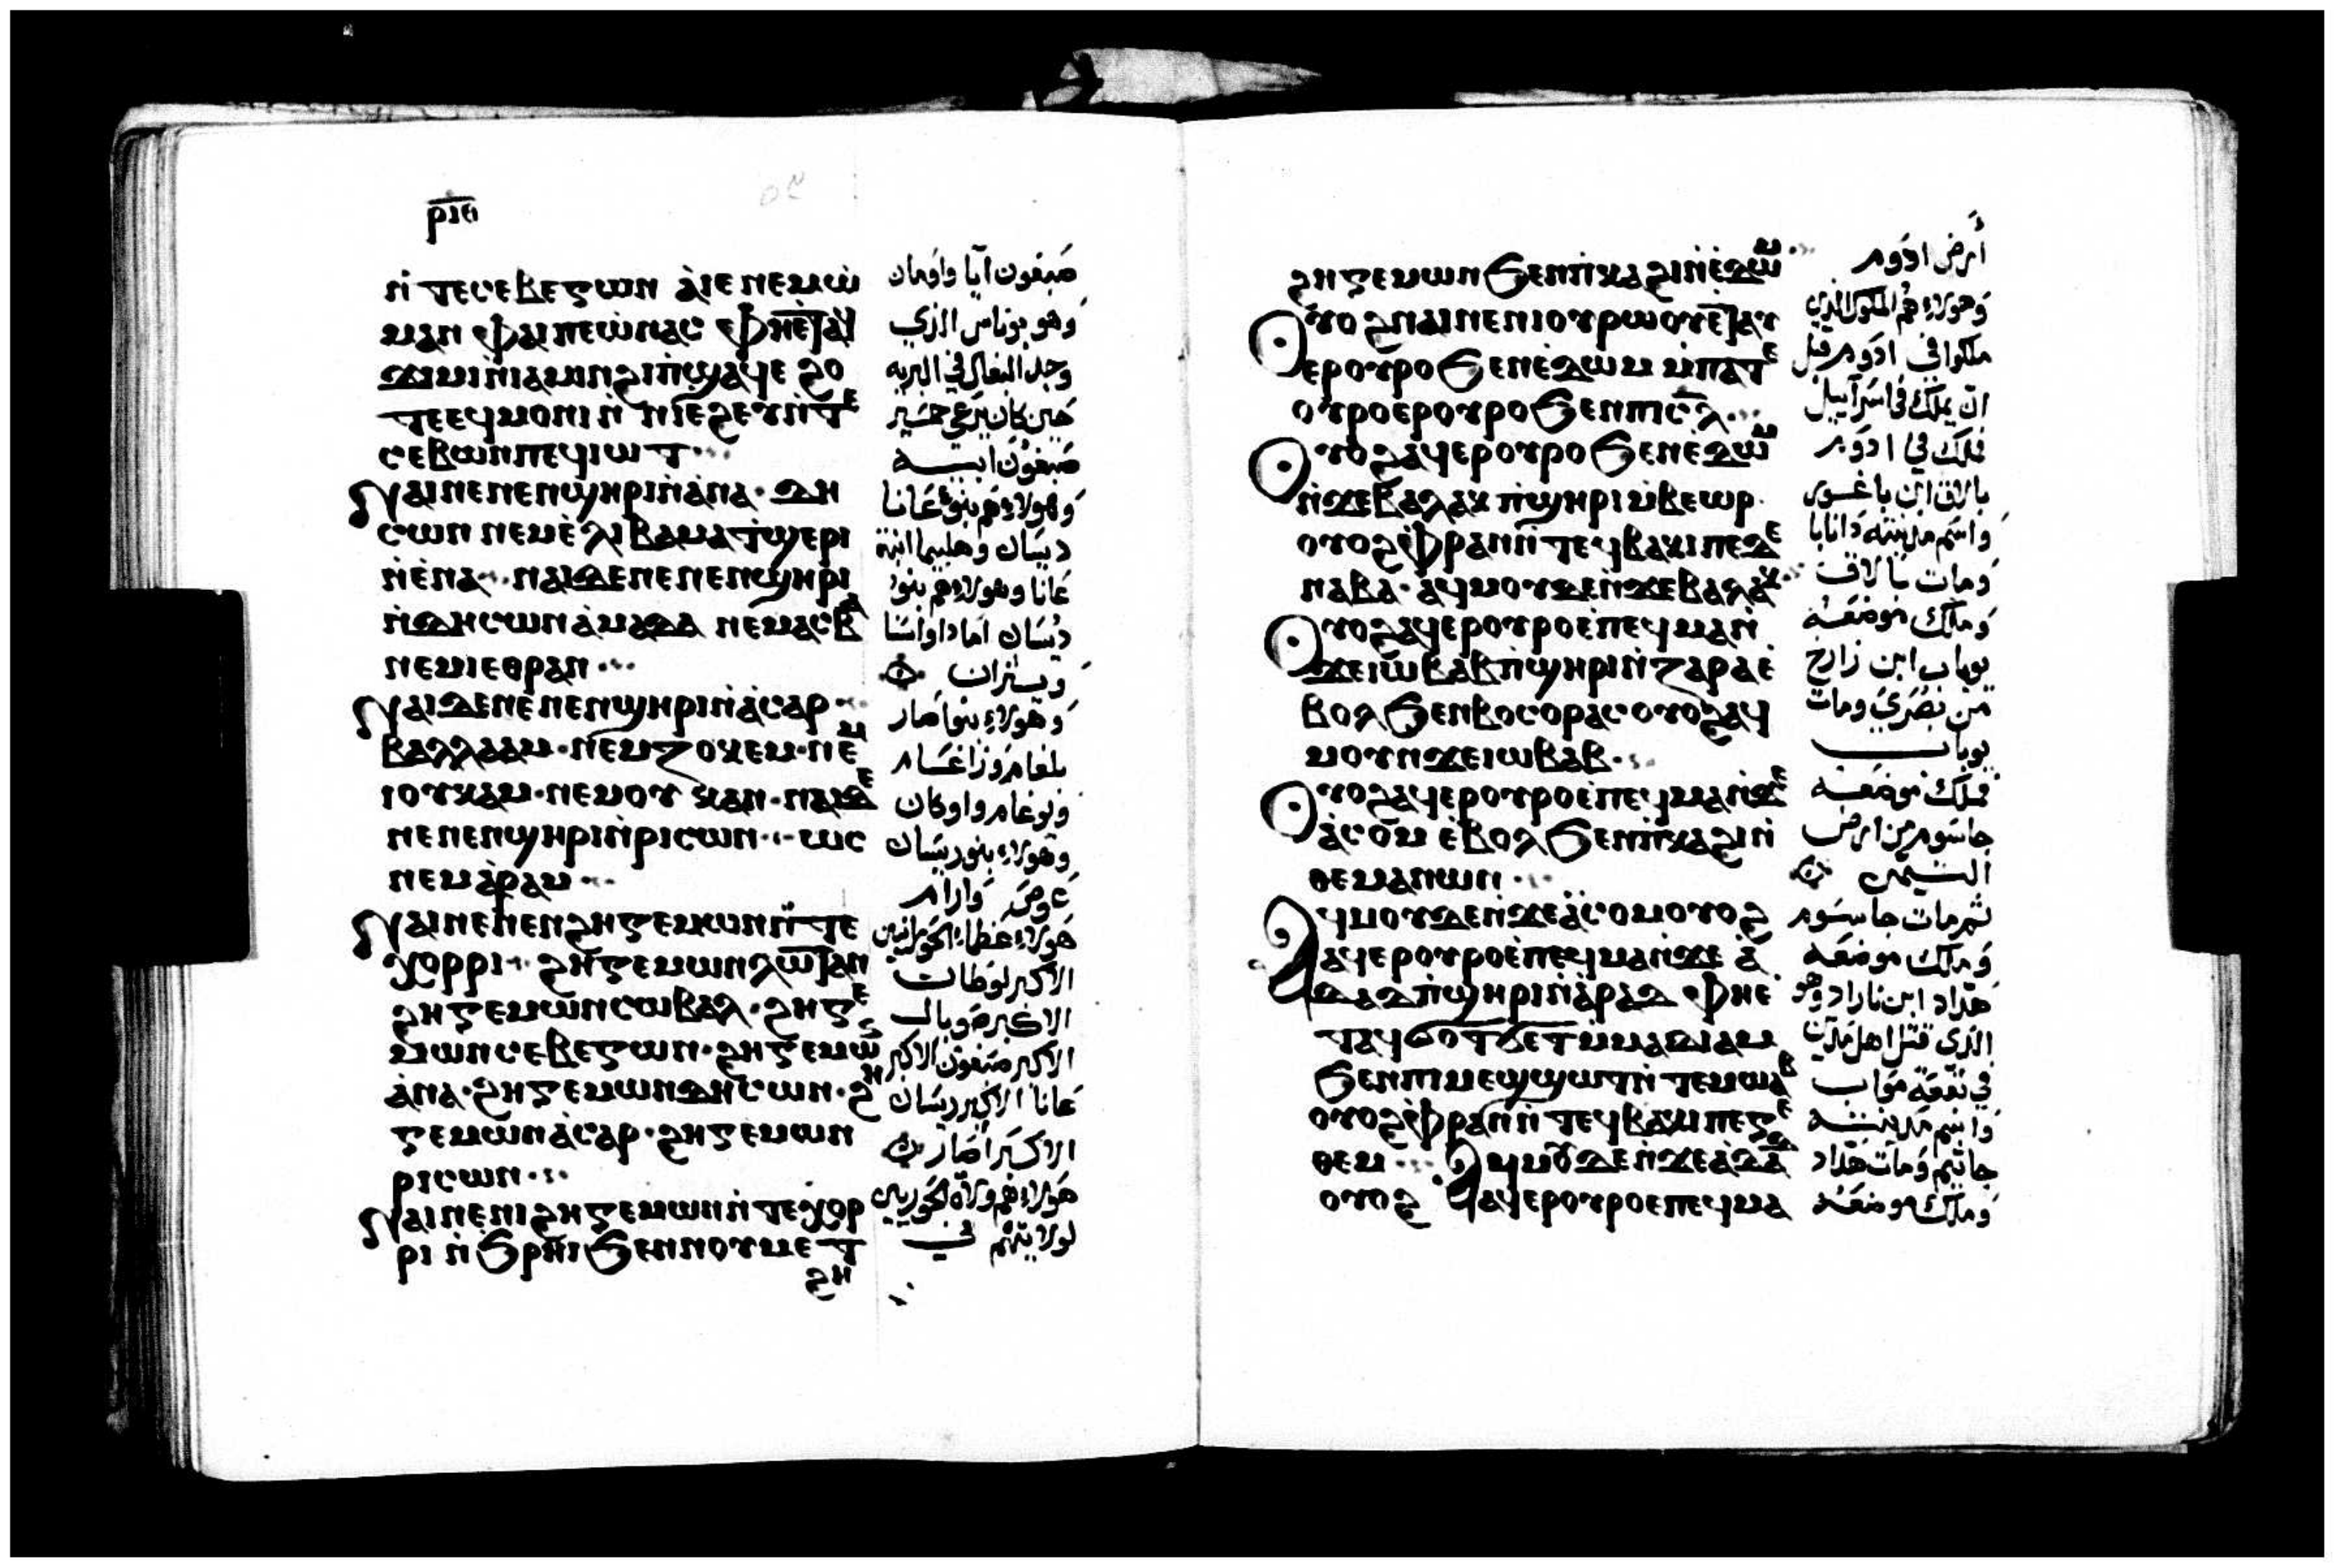 ⲣⲓⲑ
ⲛ̀ⲧⲉⲥⲉⲃⲉⲅⲱⲛ ⲁ̀ⲓⲉ ⲛⲉⲙⲱ̀
ⲙⲁⲛ ⲫⲁⲓⲡⲉⲱ̀ⲛⲁⲥ ⲫⲏⲉ̀ⲧⲁϥ
ϫⲓⲙⲓⲛ̀ⲓⲁⲙⲓⲛϩⲓⲡ̀ϣⲁϥⲉ ϩⲟ
ⲧⲉⲉϥⲙⲟⲛⲓ ⲛ̀ ⲛⲓⲉϩⲉⲩⲛ̀ⲧⲉ
ⲥⲉⲃⲱⲛⲡⲉϥⲓⲱⲧ
ⲛⲁⲓⲛⲉⲛⲉⲛϣⲏⲣⲓⲛ̀ⲁ̀ⲛⲁ· ⲇⲏ
ⲥⲱⲛ ⲛⲉⲙⲉ̀ⲗⲓⲃⲁⲙⲁⲧ̀ϣⲉⲣⲓ
ⲛ̀ⲉ̀ⲛⲁ· ⲛⲁⲓⲇⲉⲛⲉⲛⲉⲛϣⲏⲣⲓ
ⲛ̀ⲇⲏⲥⲱⲛⲁ̀ⲙⲁⲇⲁ ⲛⲉⲙⲁⲥⲃⲁ
ⲛⲉⲙⲓⲉⲑⲣⲁⲛ
ⲛⲁⲓⲇⲉⲛⲉ̀ⲛⲉⲛϣⲏⲣⲓⲛ̀ⲁ̀ⲥⲁⲣ
ⲃⲁⲗⲗⲁⲁⲙ·ⲛⲉⲙⲍⲟⲩⲕⲉⲙ·ⲛⲉⲙ
ⲓⲟⲩⲕⲁⲙ·ⲛⲉⲙⲟⲩ ⲕⲁⲛ·ⲛⲁⲓⲇⲉ
ⲛⲉⲛⲉⲛϣⲏⲣⲓⲛ̀ⲣⲓⲥⲱⲛ· ⲱⲥ
ⲛⲉⲙⲁ̀ⲣⲁⲙ
ⲛⲁⲓⲛⲉⲛⲉⲛϩⲏⲅⲉⲙⲱⲛⲛ̀ⲧⲉ
ⲭⲟⲣⲣⲓ· ϩⲏⲅⲉⲙⲱⲛⲗⲱⲧⲁⲛ
ϩⲏⲅⲉⲙⲱⲛⲥⲱⲃⲁⲗ·ϩⲏⲅⲉ
ⲙⲱⲛⲥⲉⲃⲉⲅⲱⲛ·ϩⲏⲅⲉⲙⲱⲛ
ⲁ̀ⲛⲁ·ϩⲏⲅⲉⲙⲱⲛⲇⲏⲥⲱⲛ·ϩⲏ
ⲅⲉⲙⲱⲛⲁ̀ⲥⲁⲣ·ϩⲏⲅⲉⲙⲱⲛ
ⲣⲓⲥⲱⲛ
ⲛⲁⲓⲛⲉⲛⲓϩⲏⲅⲉⲙⲱⲛⲛ̀ⲧⲉⲭⲟⲣ
ⲣⲓ ⲛ̀ϧⲣⲏⲓϧⲉⲛⲛⲟⲩⲙⲉⲧ
ϩⲏ
صبغون آيا واومان
وهو يوناس الذي
وجد البغال في البريه
حين كان يرعى حمير
صبغون ابيه
وهولاء هم بنو عانا
ديسان واهليبما ابنة
عانا وهولاء هم بنو
ديسان امادا واسبا
ويثران
وهولاء بنو اصار
بلغام وزاغام
ويوغام واوكان
وهولاء بنو ريسان
عوص وارام
الاكبر لوطان
الاكبر صوبال
الاكبر صبغون الاكبر
عانا الاكبر ديسان
الاكبر اصار
ϩⲏⲅⲉⲙⲱⲛϧⲉⲛⲡ̀ⲕⲁϩⲓⲛ̀ⲉ̀ⲇⲱⲙ
ⲟⲩⲟϩⲛⲁⲓⲛⲉⲛⲓⲟⲩⲣⲱⲟⲩⲉ̀ⲧⲁⲩ
ⲉⲣⲟⲩⲣⲟϧⲉⲛⲉ̀ⲇⲱⲙ ⲙ̀ⲡⲁⲧⲉ
ⲟⲩⲣⲟⲉⲣⲟⲩⲣⲟϧⲉⲛⲡⲓⲥ̅ⲗ̅
ⲟⲩⲟϩⲁϥⲉⲣⲟⲩⲣⲟϧⲉⲛⲉ̀ⲇⲱⲙ
ⲛ̀ϫⲉⲃⲁⲗⲁⲕ ⲡ̀ϣⲏⲣⲓⲙ̀ⲃⲉⲱⲣ·
ⲟⲩⲟϩⲫ̀ⲣⲁⲛⲛ̀ⲧⲉϥⲃⲁⲕⲓⲡⲉⲇⲉ
ⲛⲁⲃⲁ· ⲁϥⲙⲟⲩⲇⲉⲛ̀ϫⲉⲃⲁⲗⲁⲕ
ⲟⲩⲟϩⲁϥⲉⲣⲟⲩⲣⲟⲉ̀ⲡⲉϥⲙⲁⲛ̀
ϫⲉⲓⲱⲃⲁⲃⲡ̀ϣⲏⲣⲓⲛ̀ⲍⲁⲣⲁⲉ̀
ⲃⲟⲗϧⲉⲛⲃⲟⲥⲟⲣⲁⲥⲟⲩⲟϩⲁϥ
ⲙⲟⲩⲛϫⲉⲓⲱⲃⲁⲃ
ⲟⲩⲟϩⲁϥⲉⲣⲟⲩⲣⲟⲉ̀ⲡⲉϥⲙⲁⲛ̀ϫⲉ
ⲁ̀ⲥⲟⲙ ⲉ̀ⲃⲟⲗϧⲉⲛⲡ̀ⲕⲁϩⲓⲛ̀
ⲑⲉⲙⲁⲛⲱⲛ
ⲁϥⲙⲟⲩⲇⲉⲛ̀ϫⲉⲁ̀ⲥⲟⲙⲟⲩⲟϩ
ⲁϥⲉⲣⲟⲩⲣⲟⲉ̀ⲡⲉϥⲙⲁⲛ̀ϫⲉ ⲁ̀
ⲇⲁⲇⲡ̀ϣⲏⲣⲓⲛ̀ⲁ̀ⲣⲁⲇ ⲫⲏⲉ̀
ⲧⲁϥϭⲟⲧϭⲉⲧⲙ̀ⲙⲁⲇⲓⲁⲙ
ϧⲉⲛⲡⲓⲙⲉϣϣⲱⲧⲛ̀ⲧⲉⲙⲱⲁⲃ
ⲟⲩⲟϩⲫ̀ⲣⲁⲛⲛ̀ⲧⲉϥⲃⲁⲕⲓⲡⲉⲅⲉ
ⲑⲉⲙ ⲁϥⲙⲟⲩⲇⲉⲛ̀ϫⲉⲁ̀ⲇⲁⲇ
ⲟⲩⲟϩ ⲁϥⲉⲣⲟⲩⲣⲟⲉⲡⲉϥⲙⲁ
أرض ادوم
وهولاء هم الملوك الذين
ملكوا في ادوم قبل
ان يملك في اسرآييل
فملك في ادوم
بالاق ابن باغور
واسم مدينته دانابا
ومات بالاق
وملك موضعه
يوباب ابن زارح
من بصرى ومات
يوباب
فملك موضعه
جاسوم من ارض
التيمن
ثم مات جاسوم
وملك موضعه
هداد ابن باراد وهو
الذي قتل اهل مدين
في بقعة مواب
واسم مدينته
جاتيم ومات هداد
وملك موضعه